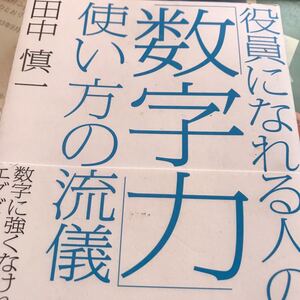 役員になれる人の
「数字力」
使い方の流儀
田中慎一
数字に強くなけれ